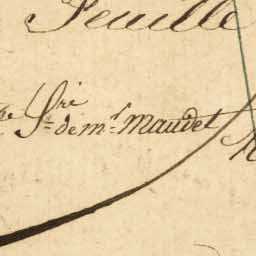 Feuille
Sri de mr Maudet